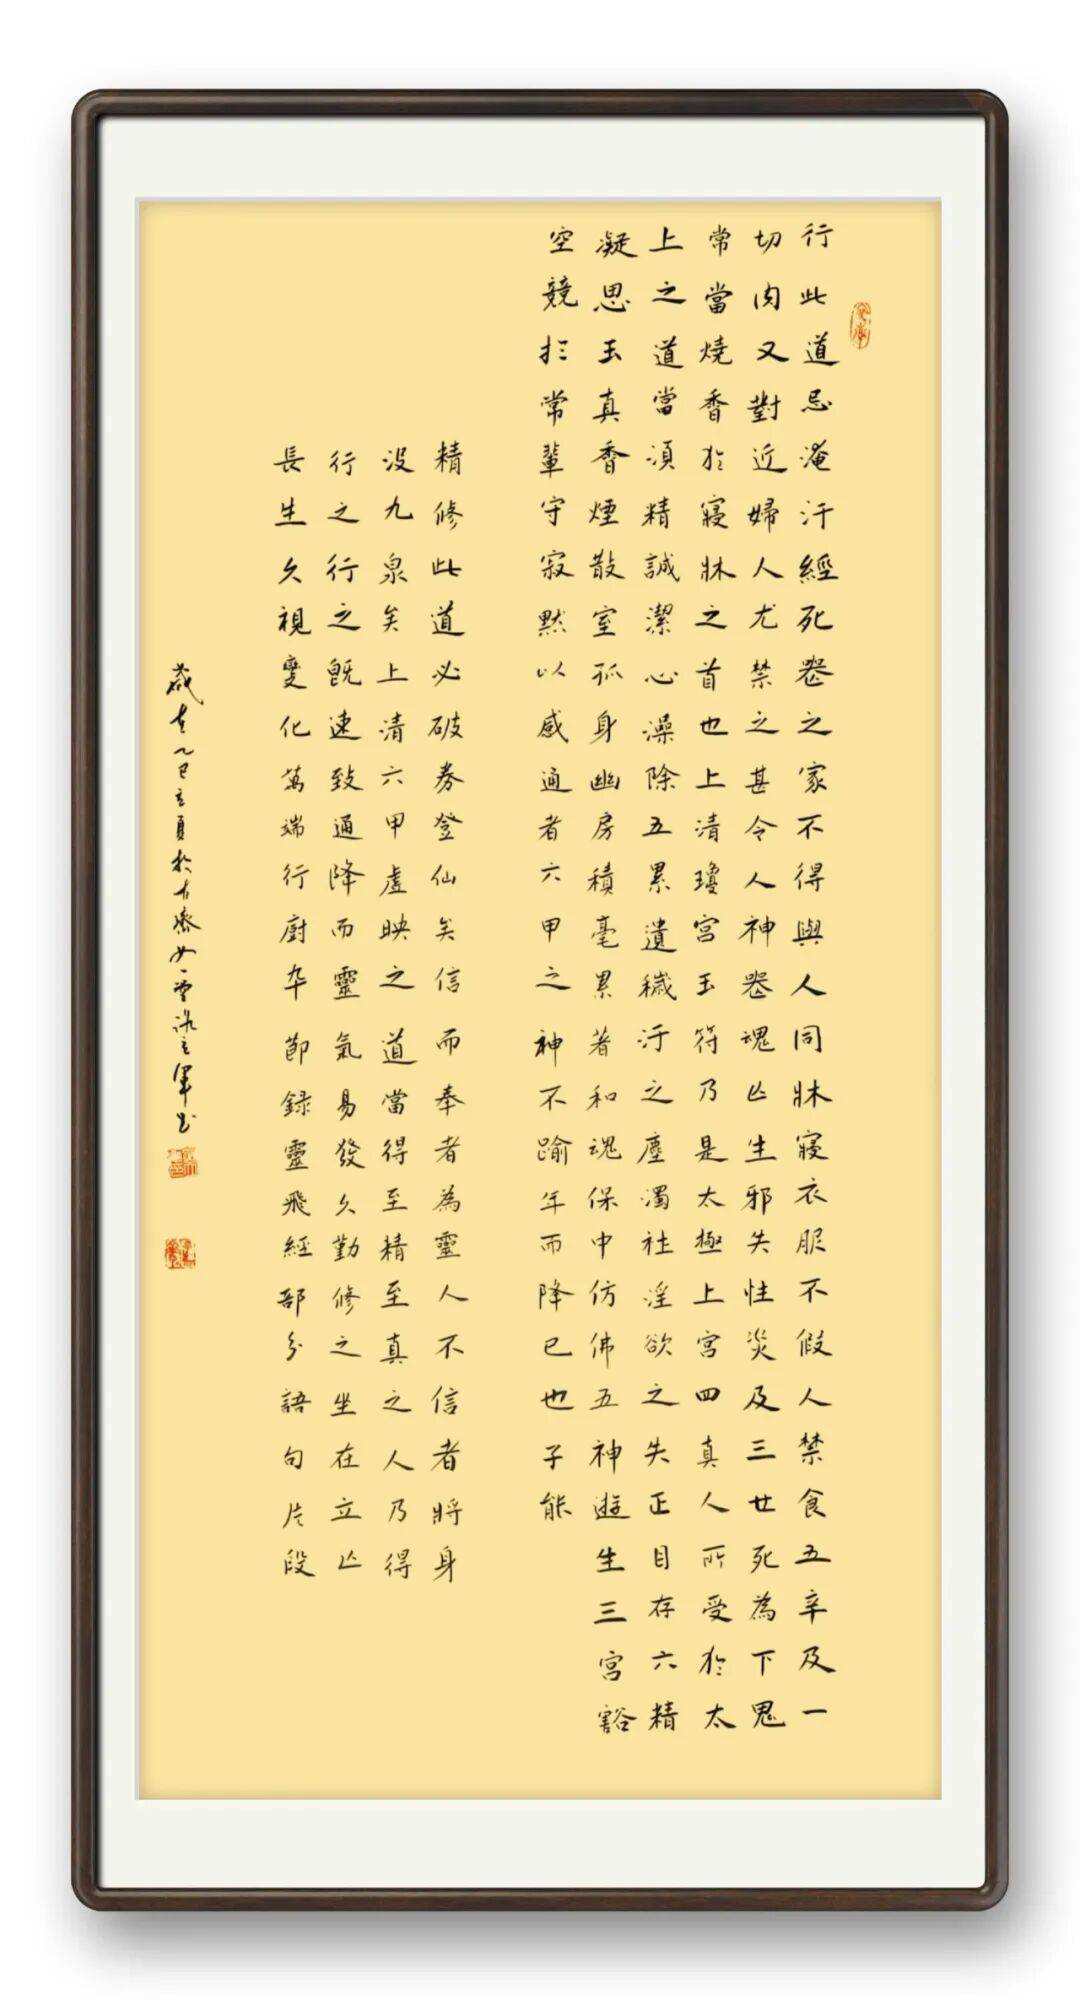 行此道忌淹汙經死器之家不得與人同牀寢衣服不假人禁食五辛及一
切肉又對近婦人尤禁之甚令人神器魂亡生邪失性災及三世死為下鬼
常當燒香於寢牀之首也上清瓊宮玉符乃是太極上宮四真人所受於太
上之道當須精誠潔心澡除五累遺穢汙之塵濁杜淫欲之失正目存六精
凝思玉真香煙散室孤身幽房積毫累著和魂保中仿佛五神遊生三宮豁
空競於常輩守寂默以感通者六甲之神不踰年而降已也子能
精修此道必破券登仙矣信而奉者為靈人不信者將身
沒九泉矣上清六甲虛映之道當得至精至真之人乃得
行之行之既速致通降而靈氣易發久勤修之坐在立亡
長生久視變化萬端行廚卒節録靈飛經部分語句片段
歲在乙巳立夏於古齋 軍书